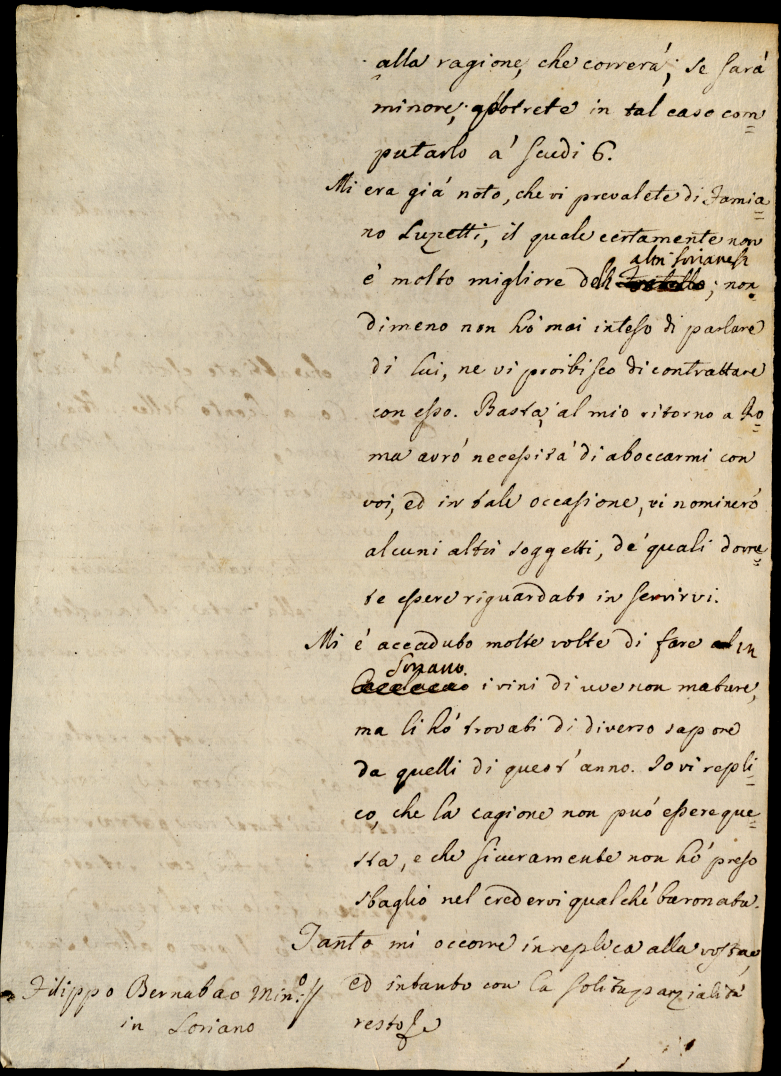 alla ragione, che correrá; se sará
minore, potrete in tal caso com=
putarlo á Scudi 6.
Mi era giá noto, che vi prevalete di Famia=
no Luzetti, il quale certamente non
altri Sorianesi
é molto migliore dell ; non=
dimeno non hó mai inteso di parlare
di lui, ne vi proibisco di contrattare
con esso. Basta, al mio ritorno a Ro=
ma avró necessitá di aboccarmi con
voi, ed in tale occasione, vi nomineró
alcuni altri soggetti, de' quali dovre=
te essere riguardato in servirvi.
Mi é accaduto molte volte di fare in
Soriano
i vini di uve non mature,
ma li hó trovati di diverso sapore
da quelli di quest'anno. Io vi repli=
co, che la cagione non puó essere que=
sta, e che sicuramente non hó preso
sbaglio nel credervi qualché baronata.
Tanto mi occorre in replica alla vostra,
ed intanto con la solita parzialitá
resto
Filippo Bernabáo Min.o
in Soriano